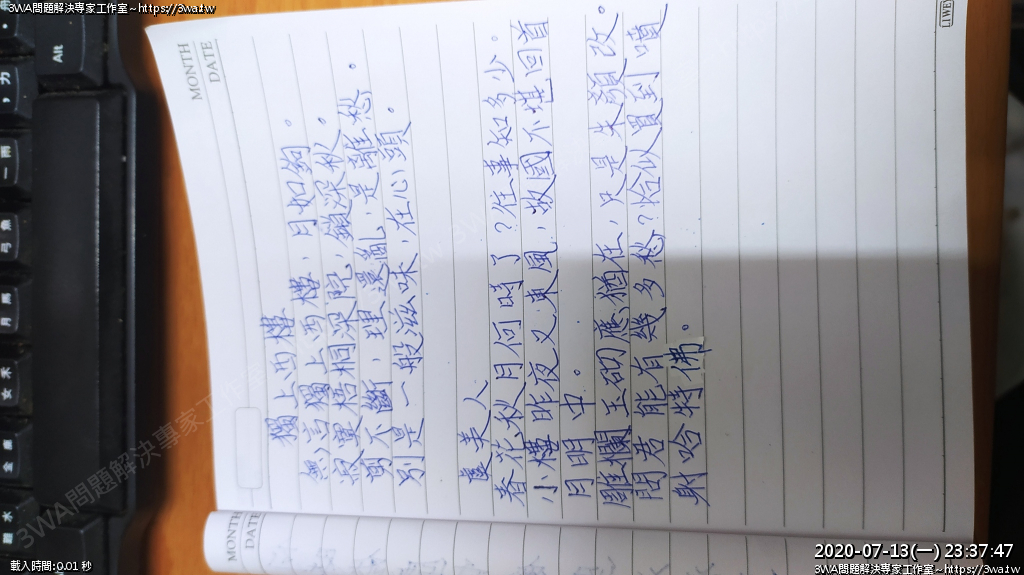 3WA問題解決專家工作室~https://3wa.tw
MONTH
DATE
獨上西樓
無言獨上西樓，月如鉤。
寂寞梧桐深院，鎖深秋。
剪不斷，理還亂，是離愁。
別是一般滋味，在心頭。
虞美人
春花秋月何時了？往事知多少。
小樓昨夜又東風，故國不堪回首
月明中。
雕欄玉砌應猶在，只是朱顏改。
問君能有幾多愁？恰似買到噴
射哈特佛。
MONTH
DATE
Alt
3WA問題解決專家工作室
載入時間:0.01 秒
2020-07-13(一) 23:37:47
3WA問題解決專家工作室~https://3wa.tw